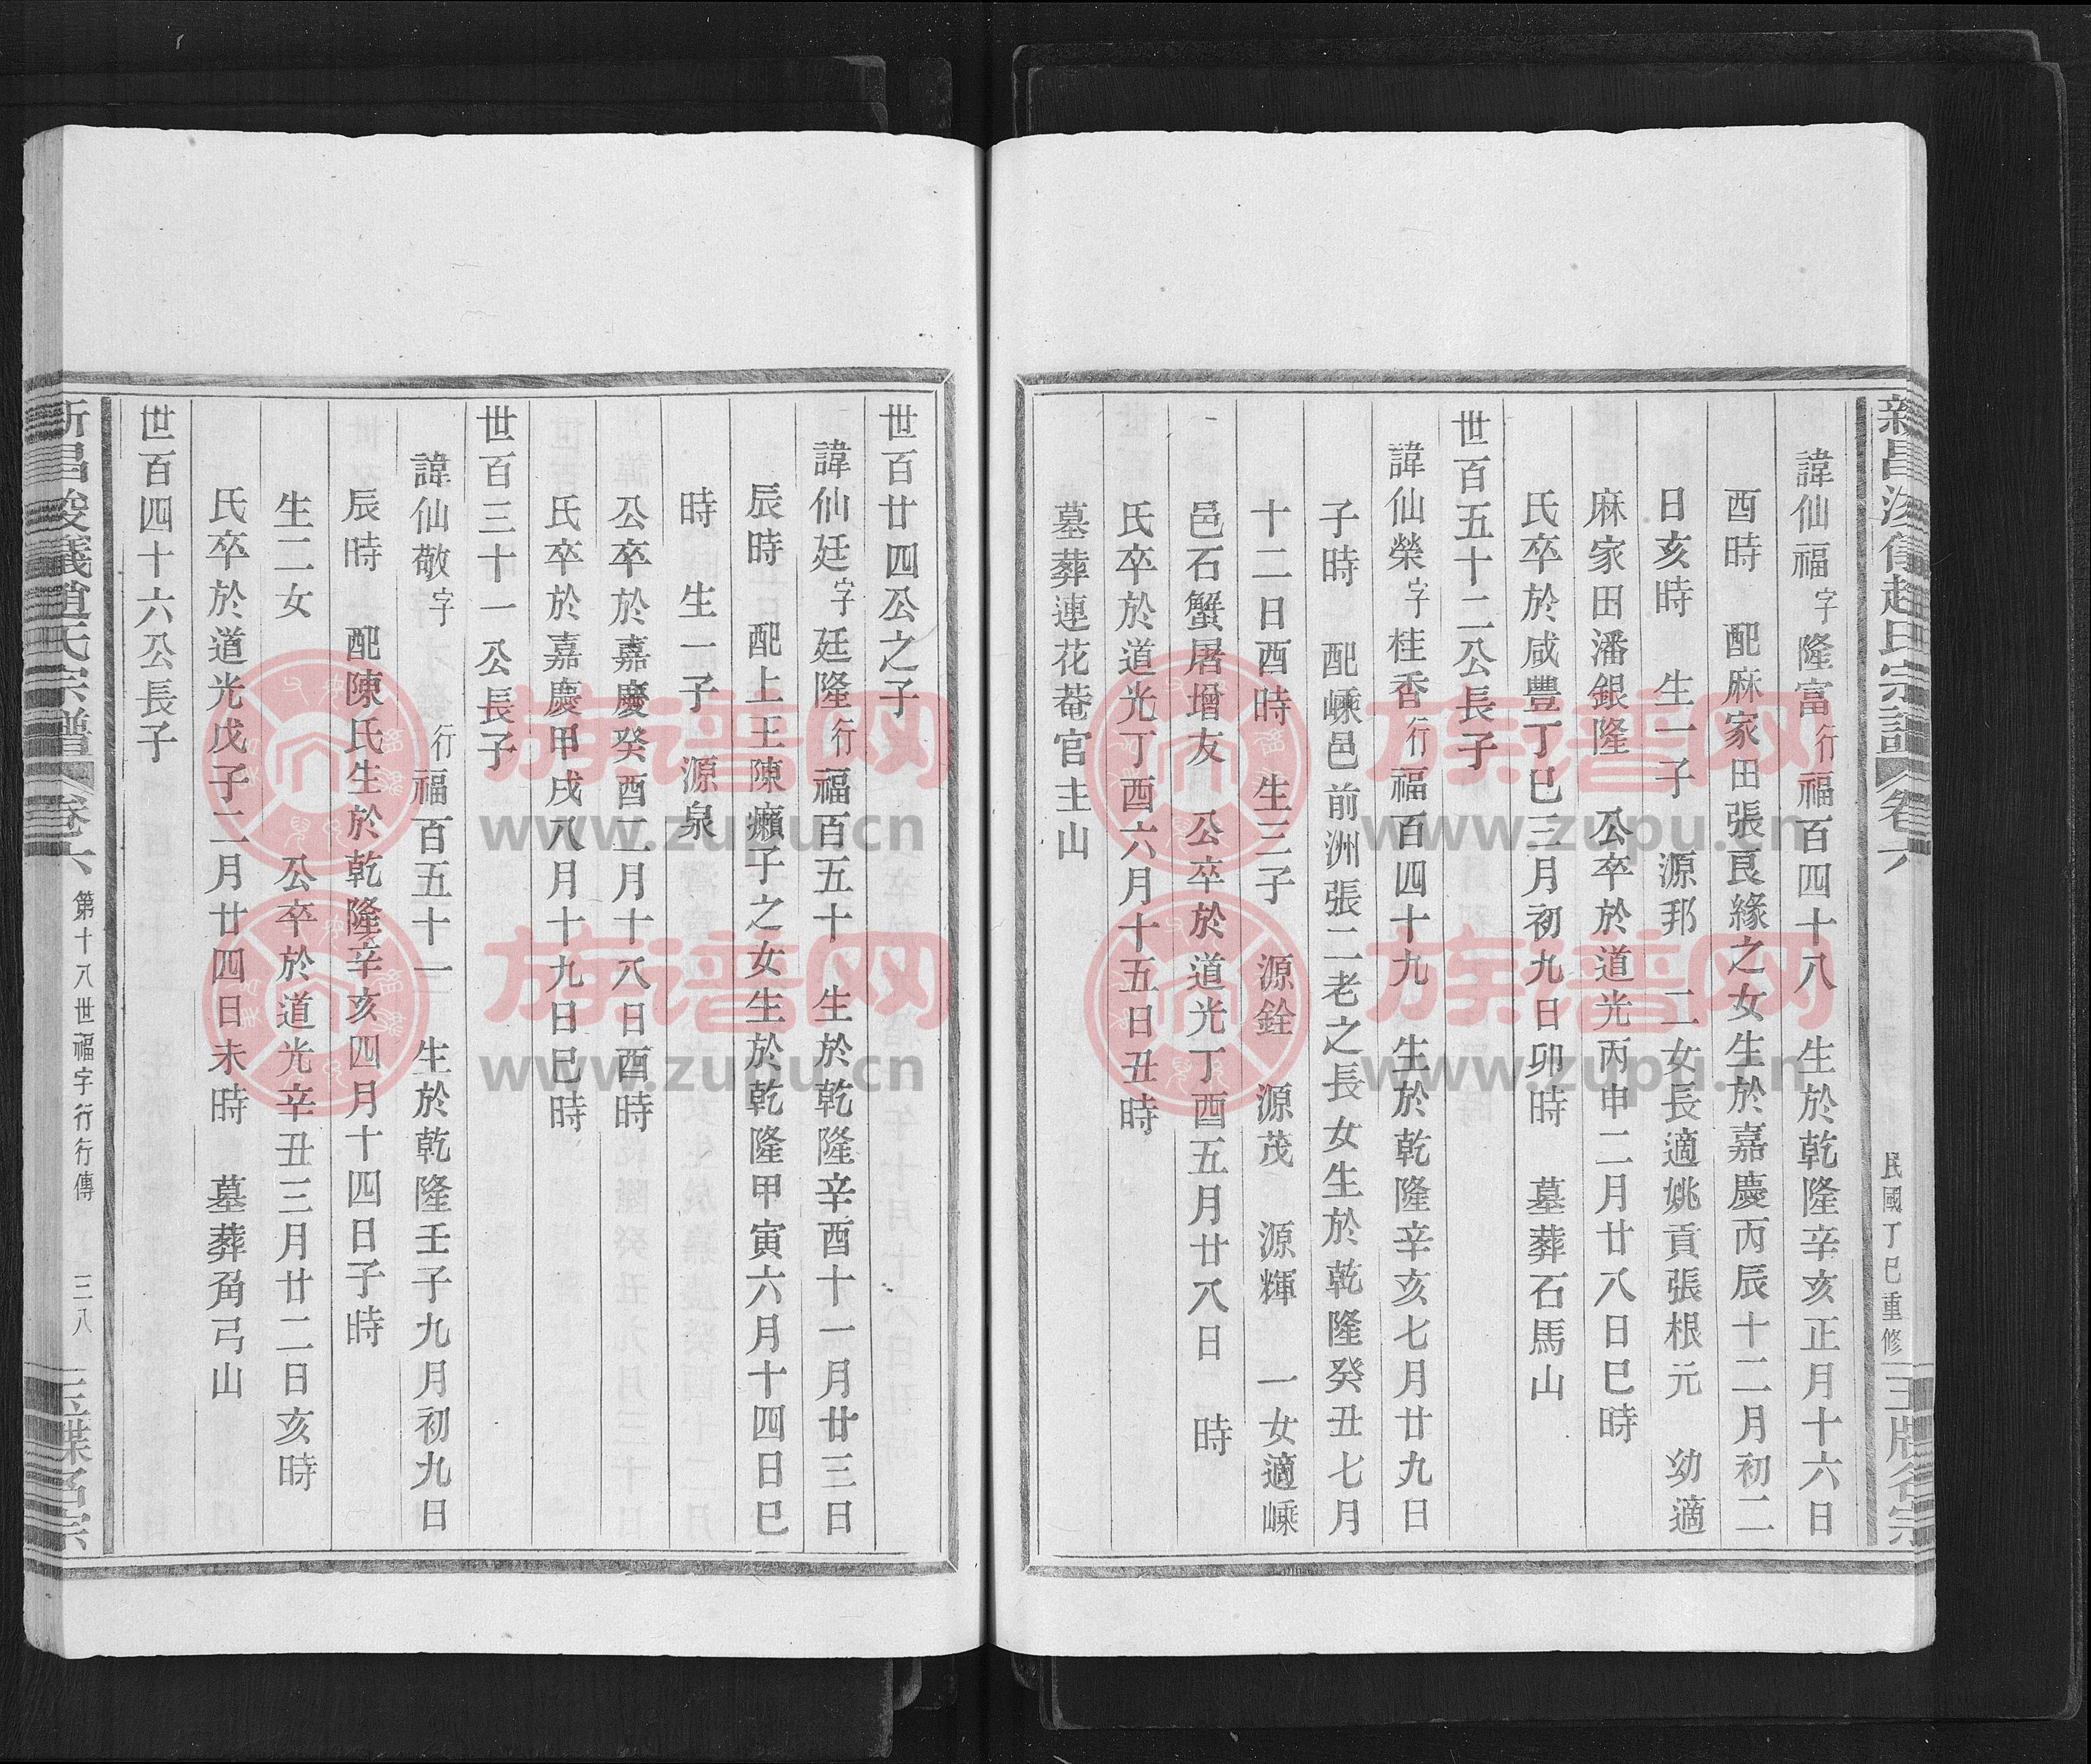 新昌浚儀趙氏宗譜 卷六 民國丁巳重修 玉牒名宗
諱仙福字隆富行福百四十八 生於乾隆辛亥正月十六日
酉時 配麻家田張良緣之女生於嘉慶丙辰十二月初二
日亥時 生一子 源邦 二女長適姚貢張根元 幼適
麻家田潘銀隆 公卒於道光丙申二月廿八日巳時
氏卒於咸豐丁巳三月初九日卯時 墓葬石馬山
世百五十二公長子
諱仙榮字桂香行福百四十九 生於乾隆辛亥七月廿九日
子時 配嵊邑前洲張二老之長女生於乾隆癸丑七月
十二日酉時 生三子 源銓 源茂 源輝 一女適嵊
邑石蟹屠增友 公卒於道光丁酉五月廿八日 時
氏卒於道光丁酉六月十五日丑時
墓葬連花菴官主山
世百廿四公之子
諱仙廷字廷隆行福百五十 生於乾隆辛酉十一月廿三日
辰時 配上王陳癩子之女生於乾隆甲寅六月十四日巳
時 生一子 源泉
公卒於嘉慶癸酉二月十八日酉時
氏卒於嘉慶甲戌八月十九日巳時
世百三十一公長子
諱仙敬字 行福百五十一 生於乾隆壬子九月初九日
辰時 配陳氏生於乾隆辛亥四月十四日子時
生二女 公卒於道光辛丑三月廿二日亥時
氏卒於道光戊子二月廿四日未時 墓葬角弓山
世百四十六公長子
新昌浚儀趙氏宗譜 卷六 第十八世福字行行傳 三八 玉牒名宗
族谱网
www.zupu.cn
族谱网
www.zupu.cn
族谱网
www.zupu.cn
族谱网
www.zupu.cn